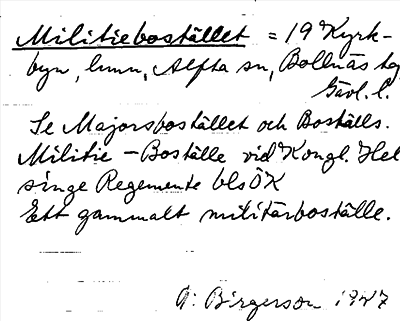 Militiebostället = 19 Kyrk-
byn, hmn, Alfta sn, Bollnäs tg
Gävl. l.
Se Majorsbostället och Boställs.
Militie - Boställe vid Kongl. Hel
singe Regemente blsÖK
Ett gammalt militärboställe.
Birgerson 1927